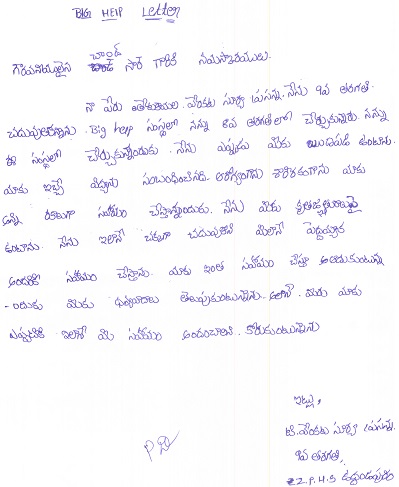 BIG HELP Letter
గౌరవనీయులైన చాంద్ సార్ గారికి నమస్కారములు.
నా పేరు వెంకట సూర్య ప్రసన్న. నేను 9వ తరగతి
చదువుతున్నాను. Big help సంస్థలో నన్ను 6వ తరగతిలో చేర్చుకున్నారు. నన్ను
ఈ సంస్థలో చేర్చుకున్నందుకు నేను ఎప్పుడు మీకు ఋణపడి ఉంటాను.
మాకు ఇచ్చే విద్యాను సంబంధించినది. ఆరోగ్యంగాను శారీరకంగాను మాకు
అన్ని రకాలుగా సహాయం చేస్తున్నారు. నేను మీకు కృతజ్ఞతలతో
ఉంటాను. నేను ఇలానే చక్కగా చదువుకొని మీలానే పెద్దయ్యాక
అందరికీ సహాయం చేస్తాను. మాకు ఇంత సహాయం చేస్తూ ఆదుకుంటున్న
-ందుకు మీకు ధన్యవాదాలు తెలుపుకుంటున్నాను. అలానే మీరు మాకు
ఎప్పటికీ ఇలానే మీ సహాయం అందించాలని కోరుకుంటున్నాను
ఇట్లు,
టి. వెంకట సూర్య ప్రసన్న.
9వ తరగతి,
Z.P.H.S